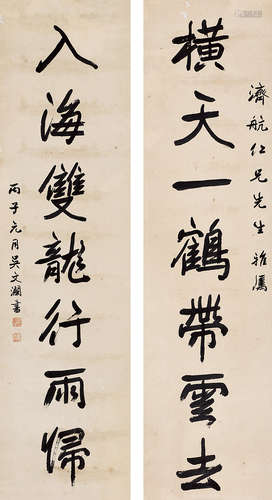 濟航仁兄先生雅屬
橫天一鶴帶雲去
入海雙龍行雨歸
丙子元月吳文瀾書